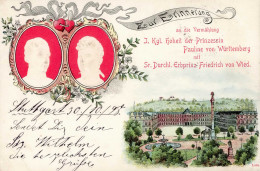 Zur Erinnerung
an die Vermählung
I. Kgl. Hoheit der Prinzessin
Pauline von Württemberg
mit
Sr. Durchl. Erbprinz Friedrich von Wied.
Stuttgart 30/
Sendet Dir dein
Wilhelm
die herzlichsten
Grüße